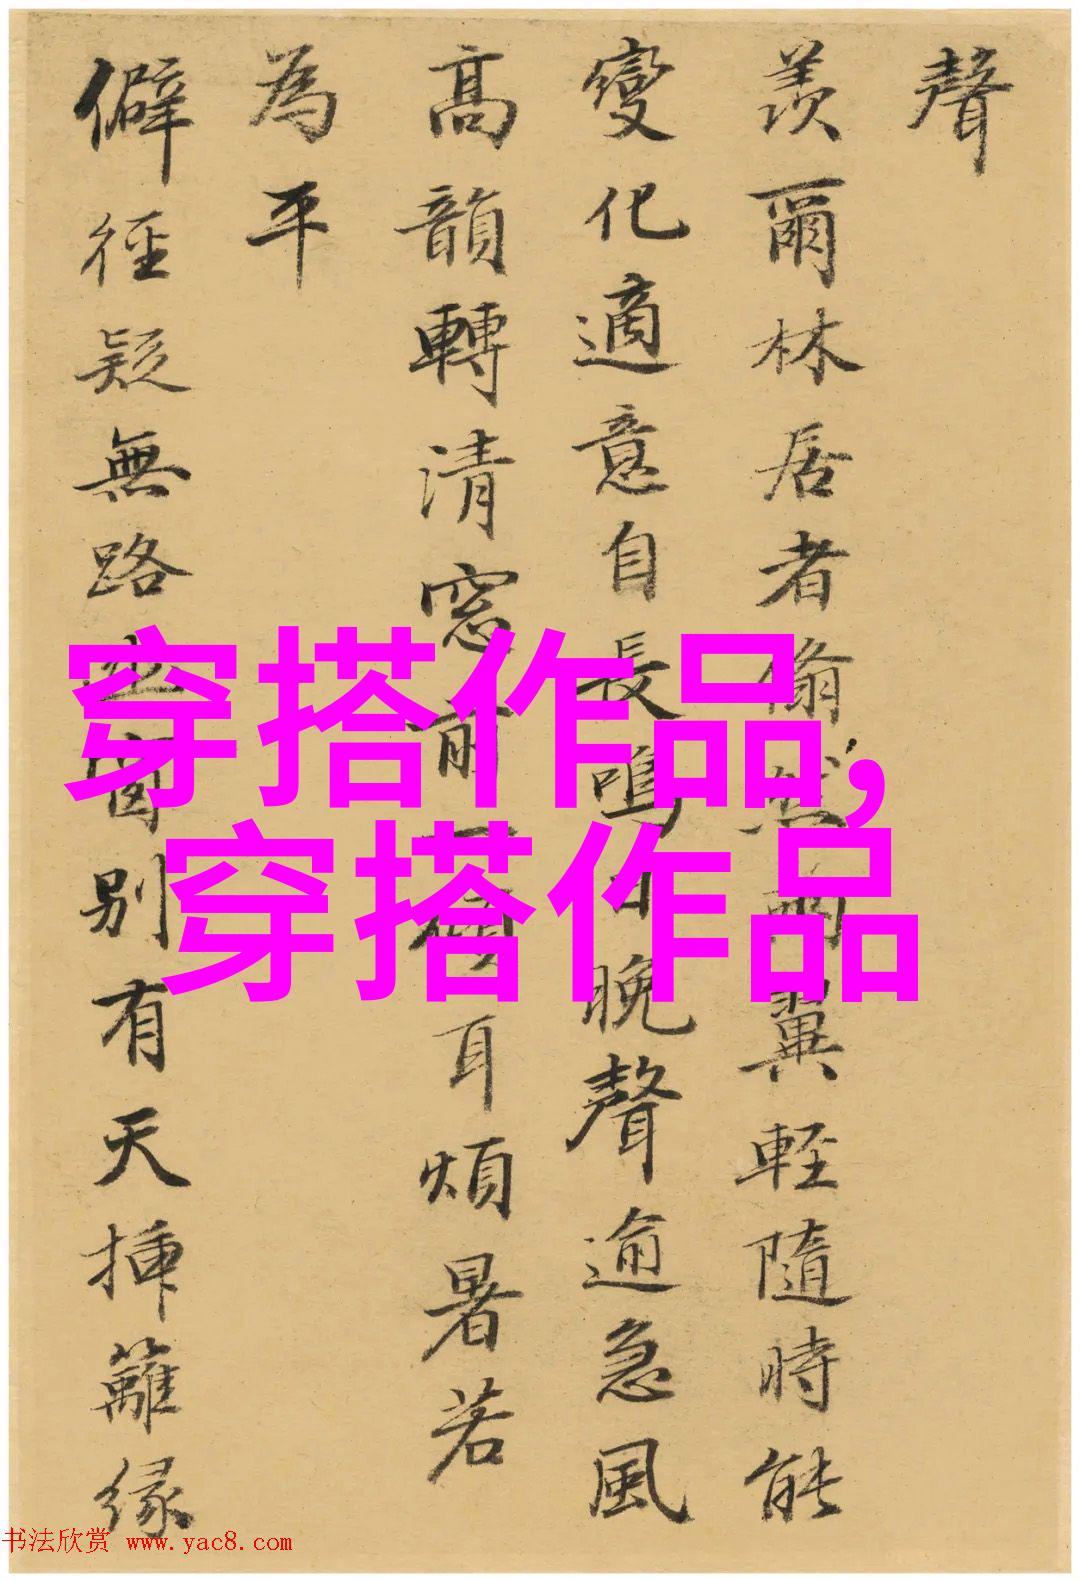 聲
羨爾林居者翛然兩翼輕隨時能
變化適意自長鳴日晚聲逾急風
高韻轉清窓前一傾耳煩暑若
為平
僻徑疑無路別有天插籬緣
穿搭作品,
穿搭作品
书法欣赏 www.yac8.com